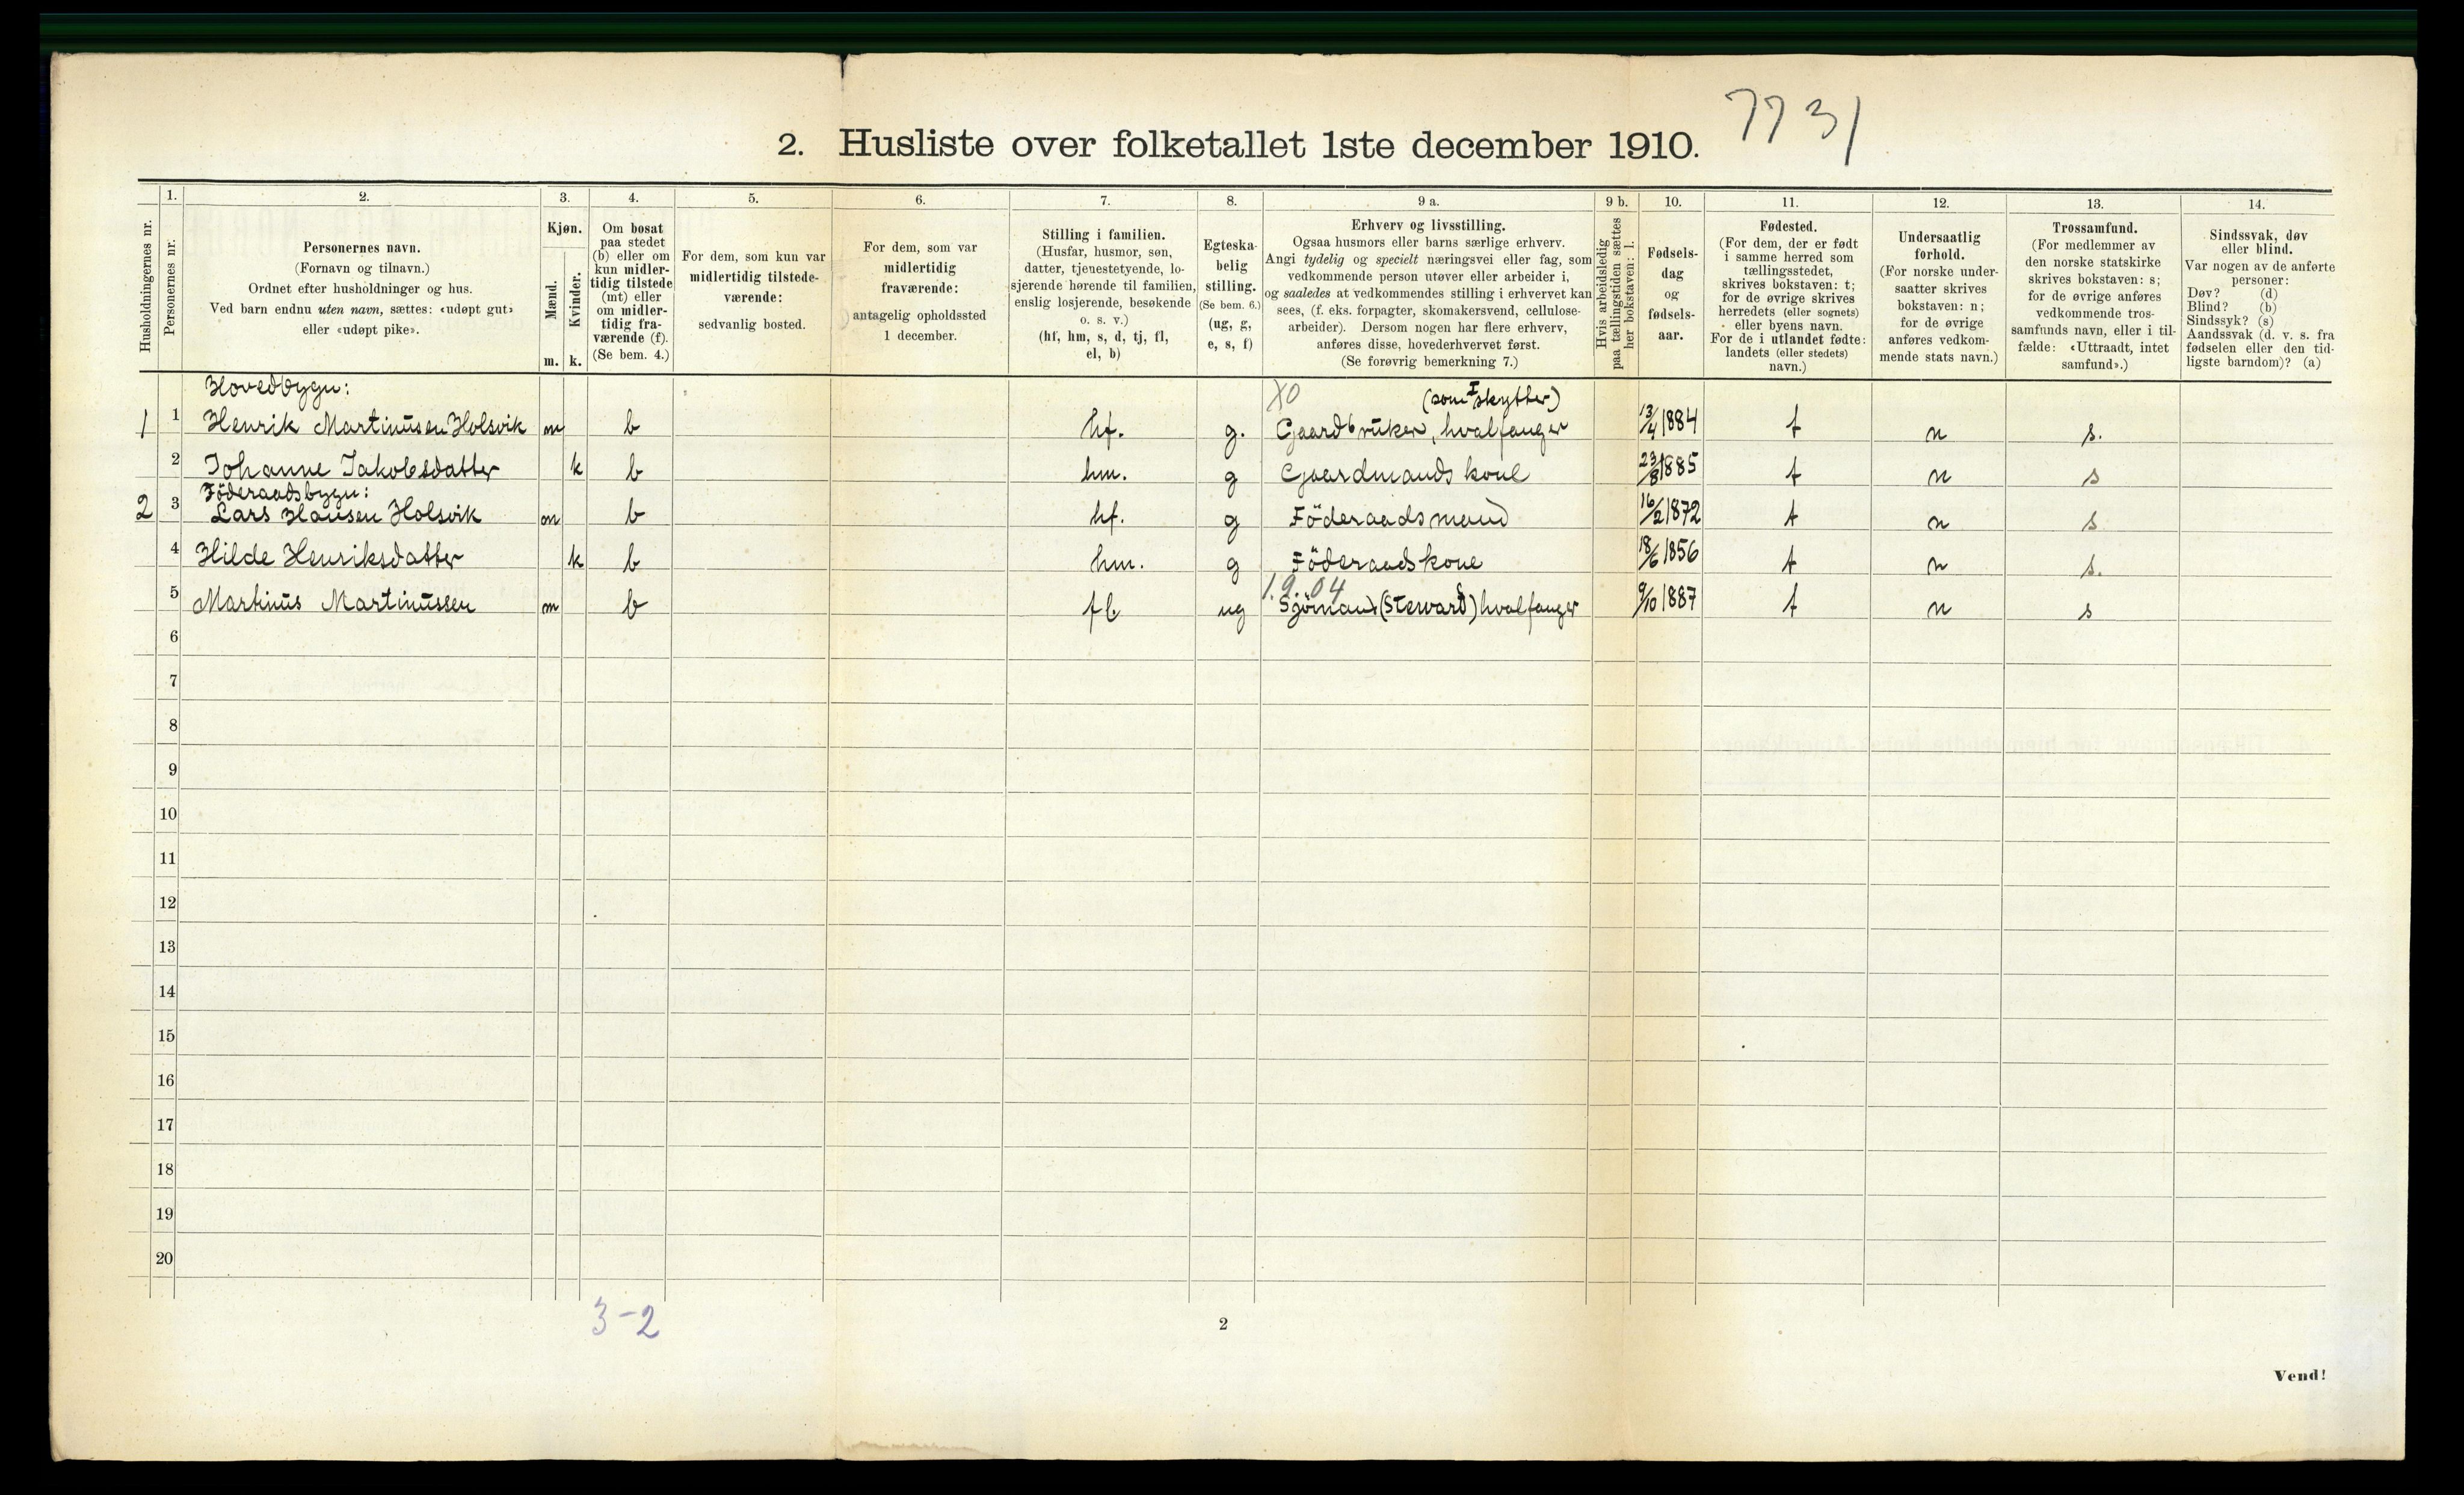 7731
2. Husliste over folketallet 1ste december 1910.
Husholdningernes nr.
1.
Personernes nr.
2.
Personernes navn.
(Fornavn og tilnavn.)
Ordnet efter husholdninger og hus.
Ved barn endnu uten navn, sættes: «udøpt gut»
eller «udøpt pike».
3.
Kjøn.
Mænd.
Kvinder.
m. k.
4.
Om bosat
paa stedet
(b) eller om
kun midler-
tidig tilstede
(mt) eller
om midler-
tidig fra-
værende (f).
(Se bem. 4.)
5.
For dem, som kun var
midlertidig tilstede-
værende:
sedvanlig bosted.
6.
For dem, som var
midlertidig
fraværende:
antagelig opholdssted
1 december.
7.
Stilling i familien.
(Husfar, husmor, søn,
datter, tjenestetyende, lo-
sjerende hørende til familien,
enslig losjerende, besøkende
o. s. v.)
(hf, hm, s, d, tj, fl,
el, b)
8.
Egteska-
belig
stilling.
(Se bem. 6.)
(ug, g,
e, s, f)
9 a.
Erhverv og livsstilling.
Ogsaa husmors eller barns særlige erhverv.
Angi tydelig og specielt næringsvei eller fag, som
vedkommende person utøver eller arbeider i,
og saaledes at vedkommendes stilling i erhvervet kan
sees, (f. eks. forpagter, skomakersvend, cellulose-
arbeider). Dersom nogen har flere erhverv,
anføres disse, hovederhvervet først.
(Se forøvrig bemerkning 7.)
9 b.
Hvis arbeidsledig
paa tællingstiden sættes
her bokstaven: l.
10.
Fødsels-
dag
og
fødsels-
aar.
11.
Fødested.
(For dem, der er født
i samme herred som
tællingsstedet,
skrives bokstaven: t;
for de øvrige skrives
herredets (eller sognets)
eller byens navn.
For de i utlandet fødte:
landets (eller stedets)
navn.)
12.
Undersaatlig
forhold.
(For norske under-
saatter skrives
bokstaven: n;
for de øvrige
anføres vedkom-
mende stats navn.)
13.
Trossamfund.
(For medlemmer av
den norske statskirke
skrives bokstaven: s;
for de øvrige anføres
vedkommende tros-
samfunds navn, eller i til-
fælde: «Uttraadt, intet
samfund».)
14.
Sindssvak, døv
eller blind.
Var nogen av de anførte
personer:
Døv? (d)
Blind? (b)
Sindssyk? (s)
Aandssvak (d. v. s. fra
fødselen eller den tid-
ligste barndom)? (a)
Hovedbygn:
X0 (som skytter)
1 1 Henrik Martinusen Holsvik m b hf. g. Gaardbruker, hvalfanger 13/4 1884 t n s.
2 Johanne Jakobsdatter k b hm. g Gaardmands kone 23/8 1885 t n s
Föderaadsbygn:
2 3 Lars Hansen Holsvik m b hf. g Föderaadsmand 16/2 1872 t n s
4 Hilde Henriksdatter k b hm. g Föderaadskone 18/6 1856 t n s.
1.9.04
5 Martinus Martinussen m b fl ug Sjömand (Steward) hvalfanger 9/10 1887 t n s
6
7
8
9
10
11
12
13
14
15
16
17
18
19
20
3-2
2
Vend!